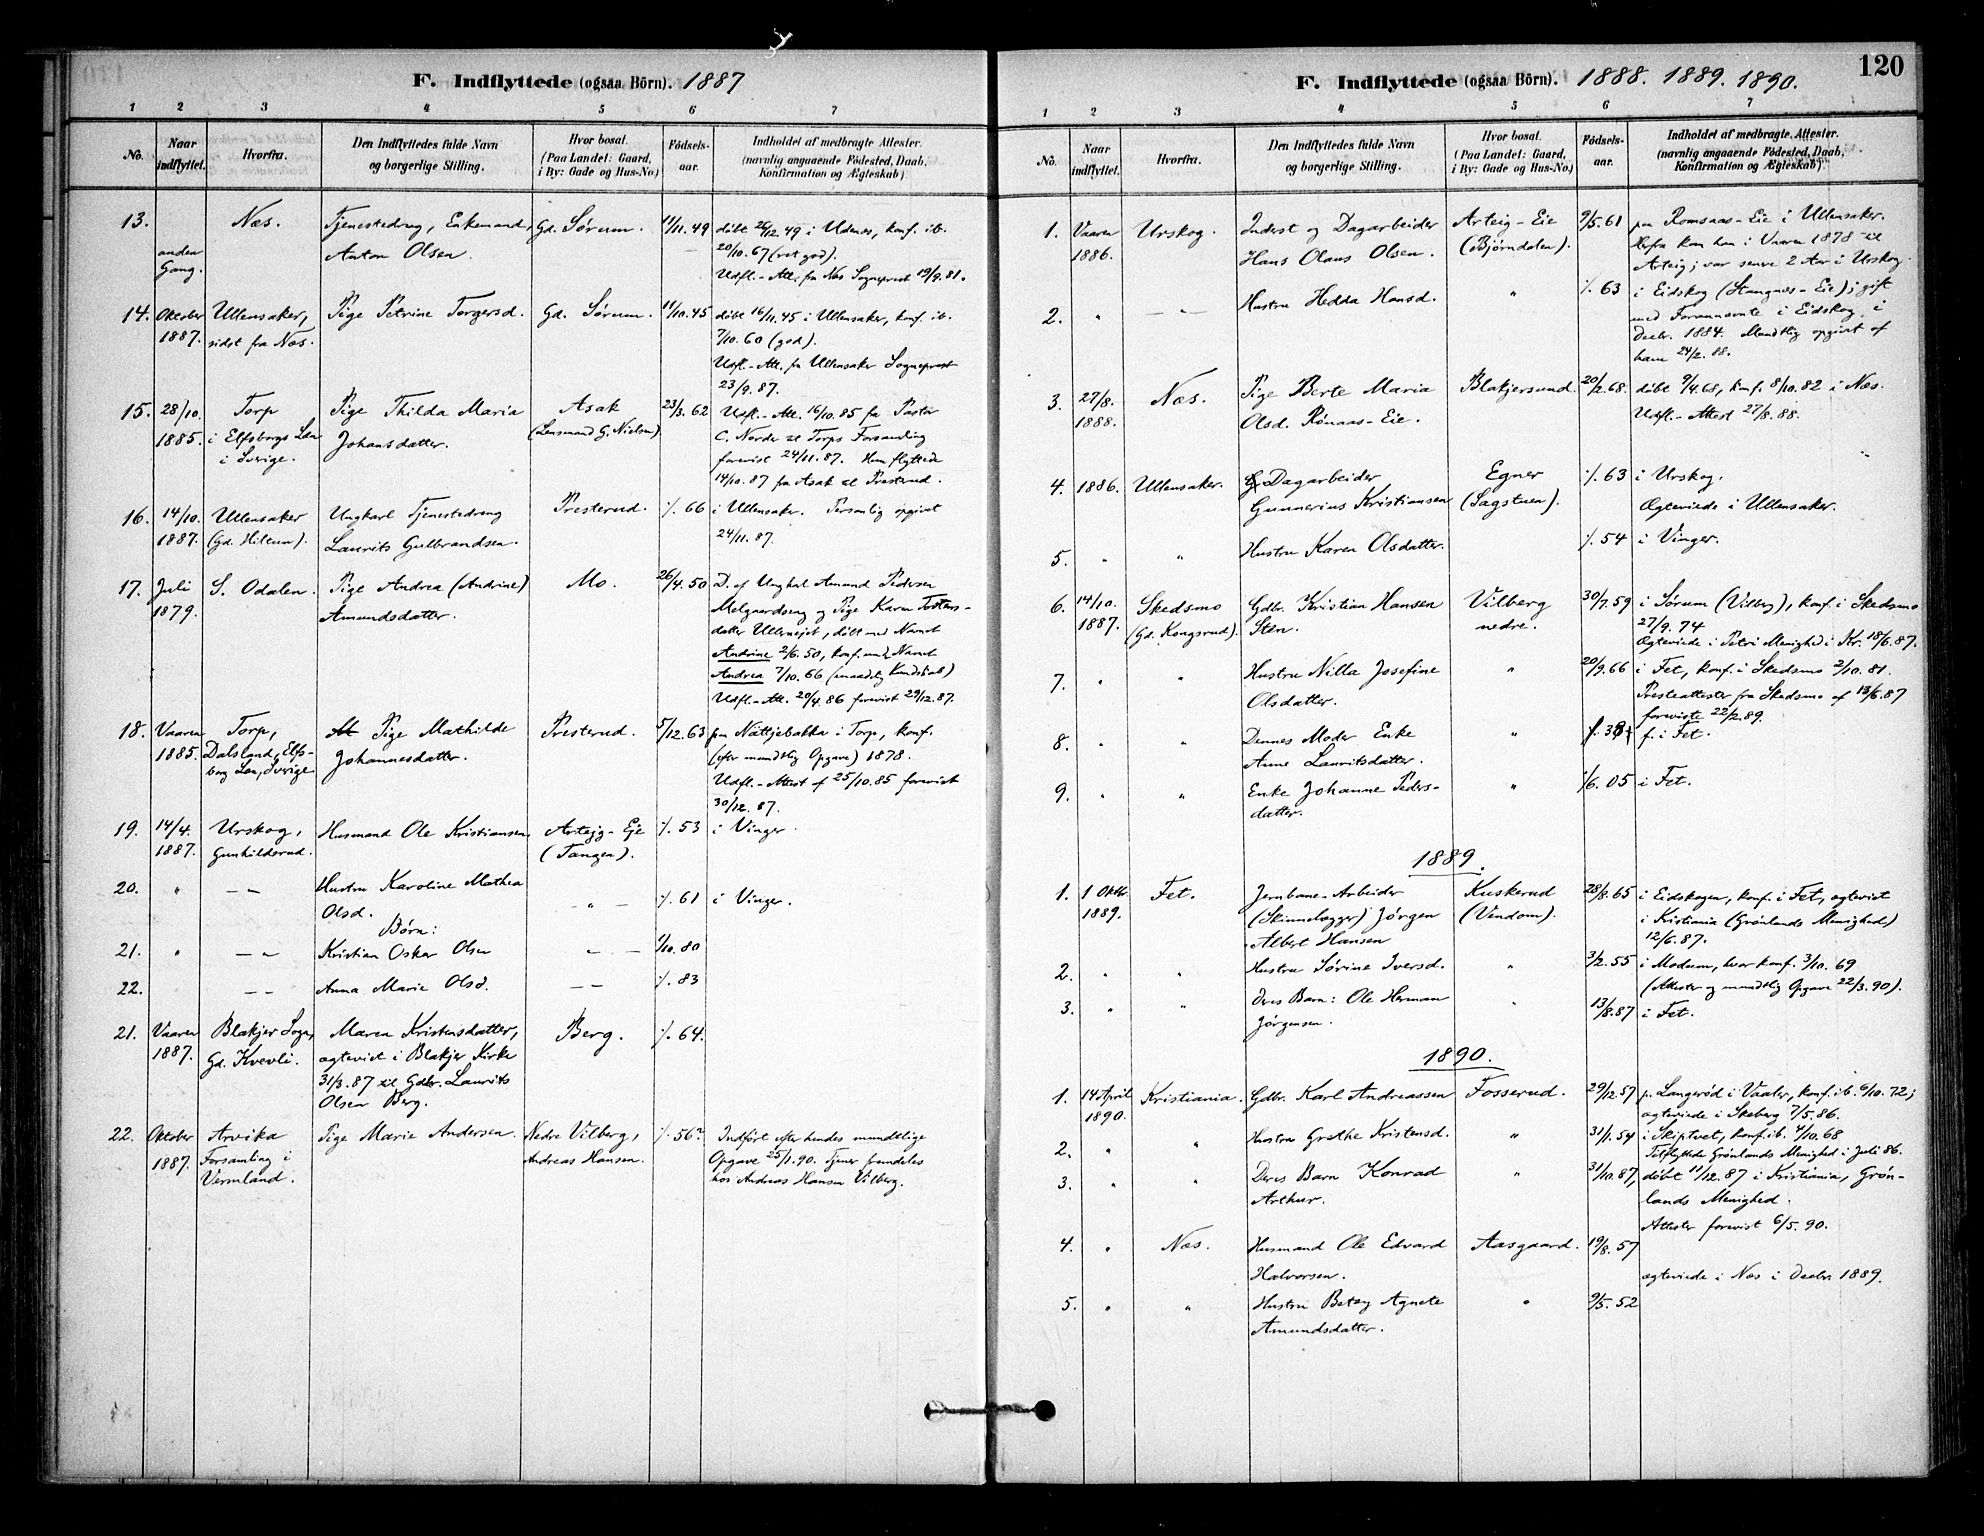 F. Indflyttede (ogsaa Börn). 1887
1 2 3 4 5 6 7
No. Naar indflyttet. Hvorfra. Den Indflyttedes fulde Navn og borgerlige Stilling. Hvor bosat. (Paa Landet: Gaard, i By: Gade og Hus-No.) Födsels-aar. Indholdet af medbragte Attester. (navnlig angaaende Födested, Daab, Konfirmation og Ægteskab)
13. Næs. Tjenestedreng, Enkemand, Gd. Sørum. 11/11.49 døbt 26/12.49 i Udnes, konf. ib.
anden Gang. Anton Olsen. 20/10.67 (ret god).
Udfl.-Att. fra Næs Sogneprest 19/9.81.
14. Oktober Ullensaker, Pige Petrine Torgersd. Gd. Sørum. 11/10.45 døbt 16/11.45 i Ullensaker, konf. ib.
1887. sidst fra Næs. 7/10.60 (god).
Udfl.-Att. fra Ullensaker Sogneprest
23/9.87.
15. 28/10. Torp Pige Thilda Maria Asak 23/3.62 Udfl.-Att. 16/10.85 fra Pastor
1885. i Elfsborgs Län Johansdatter. (Lensmand G. Nielsen) C. Norder til Torps Forsamling
i Sverige. forevist 24/11.87. Hun flyttede
14/10.87 fra Asak til Presterud.
16. 14/10. Ullensaker Ungkarl Tjenestedreng Presterud. %.66 i Ullensaker. Personlig opgivet
1887. (Gd. Hilton). Laurits Gulbrandsen. 24/11.87.
17. Juli S. Odalen. Pige Andrea (Andrine) Mo. 26/4.50 D. af Ungkarl Amund Pedersen
1879. Amundsdatter. Melgaardseng og Pige Karen Torsters-
datter Ullernejet, døbt med Navnet
Andrine 2/6.50, konf. med Navnet
Andrea 7/10.66 (maadelig Kundskab)
Udfl.-Att. 20/4.86 forevist 29/12.87.
18. Vaaren Torp, Pige Mathilde Presterud. 5/12.63 fra Nättjebakka i Torp, konf.
1885. Dalsland, Elfs- Johannesdatter. (efter mundtlig Opgave) 1878.
borg Län, Sverige Udfl.-Attest af 25/10.85 forevist
30/12.87.
19. 14/4. Urskog, Husmand Ole Kristiansen Artejg-Eje %.53 i Vinger.
1887. Gunhildsrud. (Tangen).
20. " — — Hustru Karoline Mathea — " — %.61 i Vinger.
Olsd.
Børn:
21. " — — Kristian Oskar Olsen " — 1/10.80
22. — — Anna Marie Olsd. — — %.83
21. Vaaren Blakjer Sogn, Maren Kristensdatter, Berg. %.64.
1887. Gd. Kvevli. ægteviet i Blakjer Kirke
31/3.87 til Gdbr. Laurits
Olsen Berg.
22. Oktober Arvika Pige Marie Andersen. Nedre Vilberg, %.56? Indført efter hendes mundtlige
1887. Forsamling i Andreas Hansen. Opgave 25/1.90. Tjener fremdeles
Vermland. hos Andreas Hansen Vilberg.
120
F. Indflyttede (ogsaa Börn). 1888. 1889. 1890.
1 2 3 4 5 6 7
No. Naar indflyttet. Hvorfra. Den Indflyttedes fulde Navn og borgerlige Stilling. Hvor bosat. (Paa Landet: Gaard, i By: Gade og Hus-No.) Födsels-aar. Indholdet af medbragte Attester. (navnlig angaaende Födested, Daab, Konfirmation og Ægteskab)
1. Vaaren Urskog. Inderst og Dagarbeider Arteig-Eie 9/5.61 paa Romsaas-Eie i Ullensaker.
1886. Hans Olaus Olsen. (Bjørndalen). Herfra kom han i Vaaren 1878 til
Arteig; var senere 2 Aar i Urskog.
2. " — " — Hustru Hedda Hansd. " %.63 i Eidskog (Stangnes-Eie); gift
med Forannævnte i Eidskog i
Decbr. 1884. Mundtlig opgivet af
ham 24/2.88.
3. 27/8. Næs. Pige Berte Maria Blakjersund. 20/2.68. døbt 9/4.68, konf. 8/10.82 i Næs.
1888. Olsd. Rønaas-Eie. Udfl.-Attest 27/8.88.
4. 1886. Ullensaker. Dagarbeider Egner %.63 i Urskog.
Gunnerius Kristiansen (Sagstuen). Ægteviede i Ullensaker.
5. " " Hustru Karen Olsdatter. %.54 i Vinger.
6. 14/10. Skedsmo Gdbr. Kristian Hansen Vilberg 30/7.59 i Sørum (Vilberg), konf. i Skedsmo
1887. (Gd. Kongsrud). Sten. nedre. 27/9.74
Ægteviede i Petri Menighed i Kr. 18/6.87.
7. " " Hustru Nilla Josefine " 20/9.66 i Fet, konf. i Skedsmo 2/10.81.
Olsdatter. Presteattester fra Skedsmo af 13/6.87
foreviste 22/2.89.
8. " " Dennes Moder Enke " f. i Fet.
Anne Lauritsdatter.
9. " " Enke Johanne Peders- " 1/6.05 i Fet.
datter.
1889.
1. 1 Oktbr Fet. Jernbane-Arbeider Kuskerud 28/8.65 i Eidskogen, konf. i Fet, ægteviet
1889. (Skinnelægger) Jørgen (Vendom). i Kristiania (Grønlands Menighed)
Albert Hansen 12/6.87.
2. " " Hustru Sørine Iversd. " 3/2.55 i Modum, hvor konf. 3/10.69
(Attester og mundtlig Opgave 22/3.90).
3. " " Deres Barn: Ole Herman " 13/8.87 i Fet.
Jørgensen.
1890.
1. 14 April Kristiania. Gdbr. Karl Andreassen Fosserud. 29/12.57 p. Langerød i Vaaler, konf. ib. 6/10.72;
1890. ægteviede i Skeberg 7/5.86.
2. " " Hustru Grethe Kristensd. " 31/1.54 i Skiptvet, konf. ib. 4/10.68
Tilflyttede Grønlands Menighed i Juli 86.
3. " " Deres Barn Konrad " 31/10.87, døbt 11/12.87 i Kristiania, Grøn-
Arthur. lands Menighed.
Attester forevist 6/5.90.
4. " Næs. Husmand Ole Edvard Aasgaard. 19/8.57
Halvorsen. ægteviede i Næs i Decbr. 1889.
5. " " Hustru Betzy Agnete " 9/5.52
Amundsdatter.